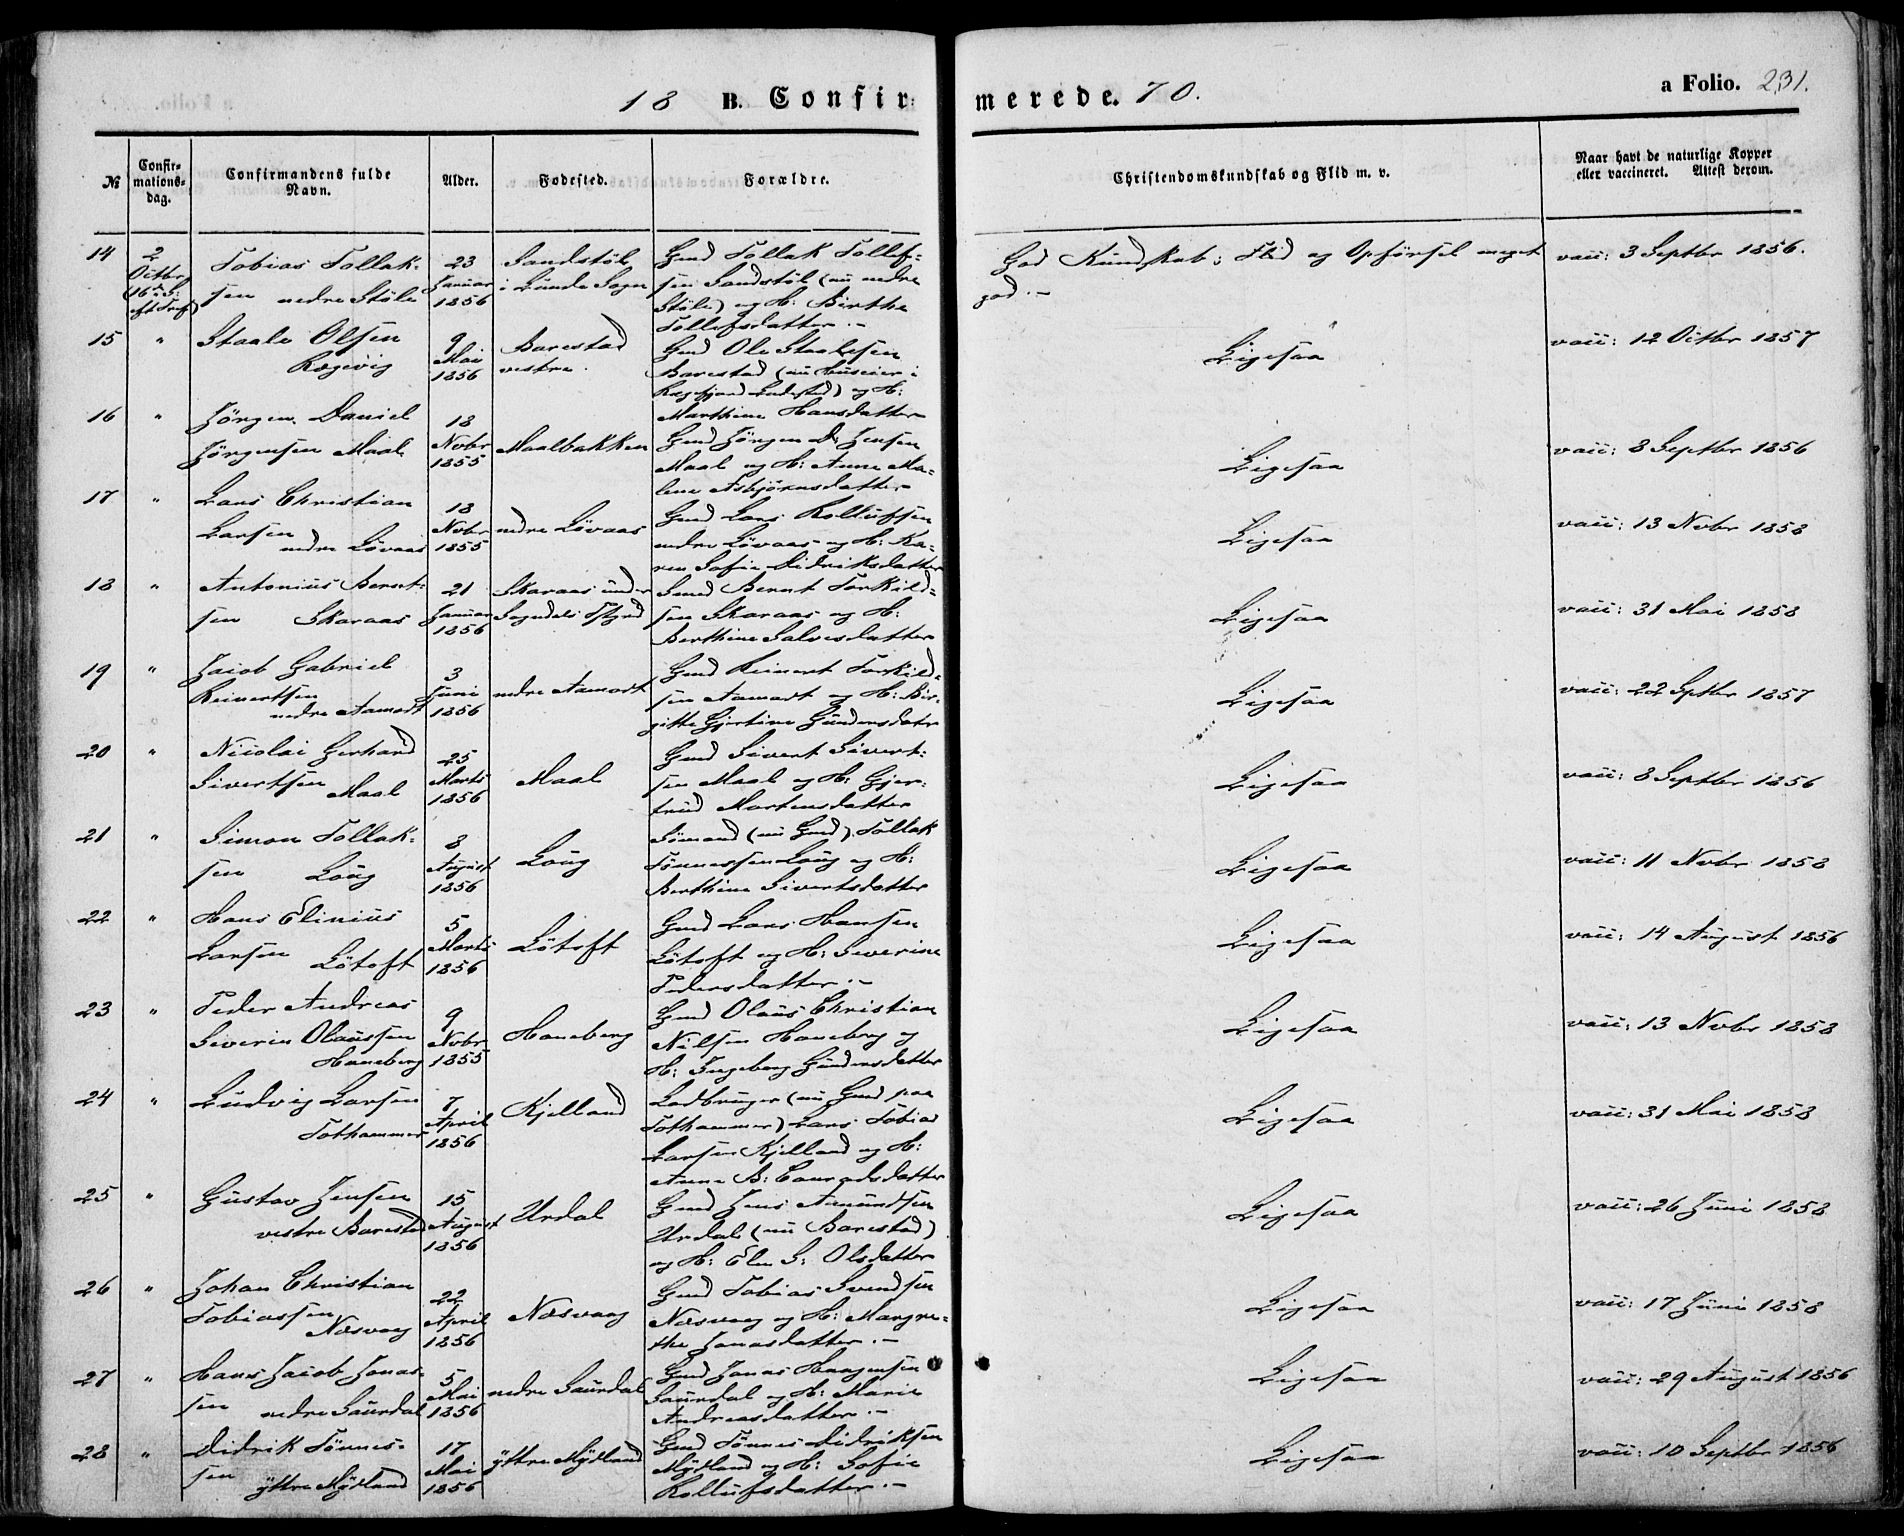 18 B. Confirmerede. 70.
a Folio. 231.
№ Confirmationsdag. Confirmandens fulde Navn. Alder. Fodested. Forældre. Christendomskundskab og Flid m. v. Naar havt de naturlige Kopper eller vaccineret. Attest derom.
14 2 Octbr (16de S: eft Tref) Tobias Tollaksen nedre Stöle 23 Januar 1856 Sandstöl i Lunde Sogn Gmd Tollak Tollefsen Sandstöl (nu nedre Stöle) og H: Birthe Tollefsdatter.- God Kundskab; Flid og Opførsel meget god.- vacc: 3 Septbr 1856.
15 " Staale Olsen Rægevig 9 Mai 1856 Barestad vestre. Gmd Ole Staalesen Barestad (nu Huseier i Rægefjord Ladested) og H: Marthine Hansdatter Ligesaa vacc: 12 Octbr 1857
16 " Jörgen Daniel Jörgensen Maal 18 Novbr 1855 Maalbakken Gmd Jörgen D. Jensen Maal og H: Anne Malene Asbjörnsdatter Ligesaa vacc: 8 Septbr 1856
17 " Lars Christian Larsen nedre Lövaas 18 Novbr 1855 nedre Lövaas Gmd Lars Rollufsen nedre Lövaas og H: Karen Sofie Didriksdatter Ligesaa vacc: 13 Novbr 1858
18 " Antonius Berntsen Skaraas 21 Januar 1856 Skaraas under Sogndals Pstgrd Smed Bernt Torkildsen Skaraas og H: Berthine Salvesdatter Ligesaa vacc: 31 Mai 1858
19 " Jacob Gabriel Reinertsen nedre Aamodt 3 Juni 1856 nedre Aamodt Gmd Reinert Torkildsen Aamodt og H: Birgitte Gjertine Gundersdatter Ligesaa vacc: 22 Septbr 1857
20 " Nicolai Gerhard Sivertsen Maal 25 Marts 1856 Maal Gmd Sivert Sivertsen Maal og H: Gjertrud Mortensdatter Ligesaa vacc: 8 Septbr 1856
21 " Simon Tollaksen Loug 8 August 1856 Loug Sömand (nu Gmd) Tollak Tönnessen Loug og H: Berthine Sivertsdatter Ligesaa vacc: 11 Novbr 1858
22 " Hans Elinius Larsen Lötoft 5 Marts 1856 Lötoft Gmd Lars Hansen Lötoft og H: Severine Pedersdatter.- Ligesaa vacc: 14 August 1856
23 " Peder Andreas Severin Olaussen Haneberg 9 Novbr 1855 Haneberg Gmd Olaus Christian Nielsen Haneberg og H: Ingeborg Gundersdatter Ligesaa vacc: 13 Novbr 1858
24 " Ludvig Larsen Tothammer 7 April 1856 Kjelland Ladbruger (nu Gmd paa Tothammer) Lars Tobias Larsen Kjelland og H: Anne B: Conradsdatter Ligesaa vacc: 31 Mai 1858
25 " Gustav Jensen vestre Barestad 15 August 1856 Urdal Gmd Jens Amundsen Urdal (nu Barestad) og H: Elen S: Olsdatter Ligesaa vacc: 26 Juni 1858
26 " Johan Christian Tobiassen Næsvaag 22 April 1856 Næsvaag Gmd Tobias Svendsen Næsvaag og H: Margrethe Jonasdatter.- Ligesaa vacc: 17 Juni 1858
27 " Hans Jacob Jonassen nedre Saurdal 5 Mai 1856 nedre Saurdal Gmd Jonas Haagensen Saurdal og H: Marie Andreasdatter.- Ligesaa vacc: 29 August 1856
28 " Didrik Tönnessen yttre Mydland 17 Mai 1856 yttre Mydland Gmd Tönnes Didriksen Mydland og H: Sofie Rollufsdatter.- Ligesaa vacc: 10 Septbr 1856